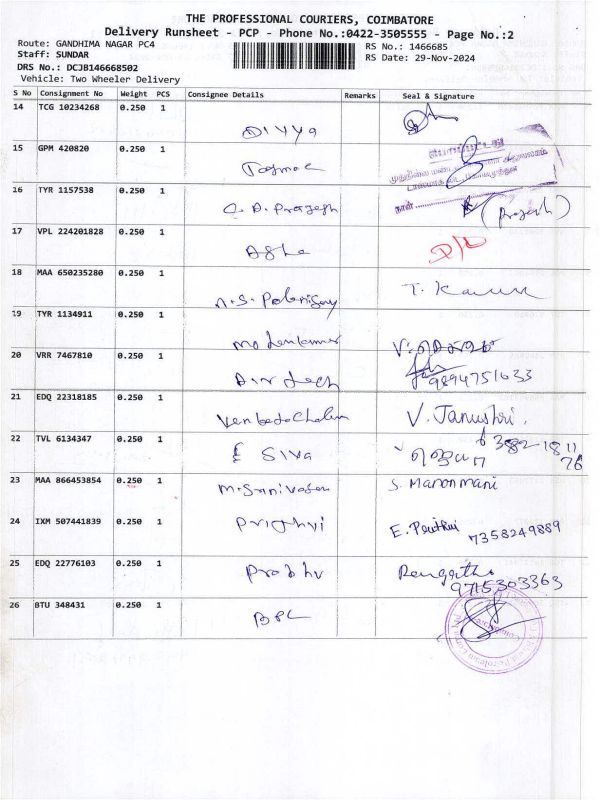 THE PROFESSIONAL COURIERS, COIMBATORE
Delivery Runsheet - PCP - Phone No.:0422-3505555 - Page No.:2
Route: GANDHIMA NAGAR PC4 RS No.: 1466685
Staff: SUNDAR RS Date: 29-Nov-2024
DRS No.: DCJB146668502
Vehicle: Two Wheeler Delivery
S No Consignment No Weight PCS Consignee Details Remarks Seal & Signature
14 TCG 10234268 0.250 1
Divya
15 GPM 420820 0.250 1
16 TYR 1157538 0.250 1
C. D. Prajesh (Prajesh)
17 VPL 224201828 0.250 1
Asha
18 MAA 650235280 0.250 1
N.S. Palanisamy T. Kavin
19 TYR 1134911 0.250 1
Mohankumar
20 VRR 7467810 0.250 1
9894751033
21 EDQ 22318185 0.250 1
Venkatachalam V. Janushri.
22 TVL 6134347 0.250 1
Siva 6382 1811
76
23 MAA 866453854 0.250 1
M. Srinivasan S. Manonmani
24 IXM 507441839 0.250 1
Prithvi E. Prithvi 7358249889
25 EDQ 22776103 0.250 1
Prabhu
9715303363
26 BTU 348431 0.250 1
BPC